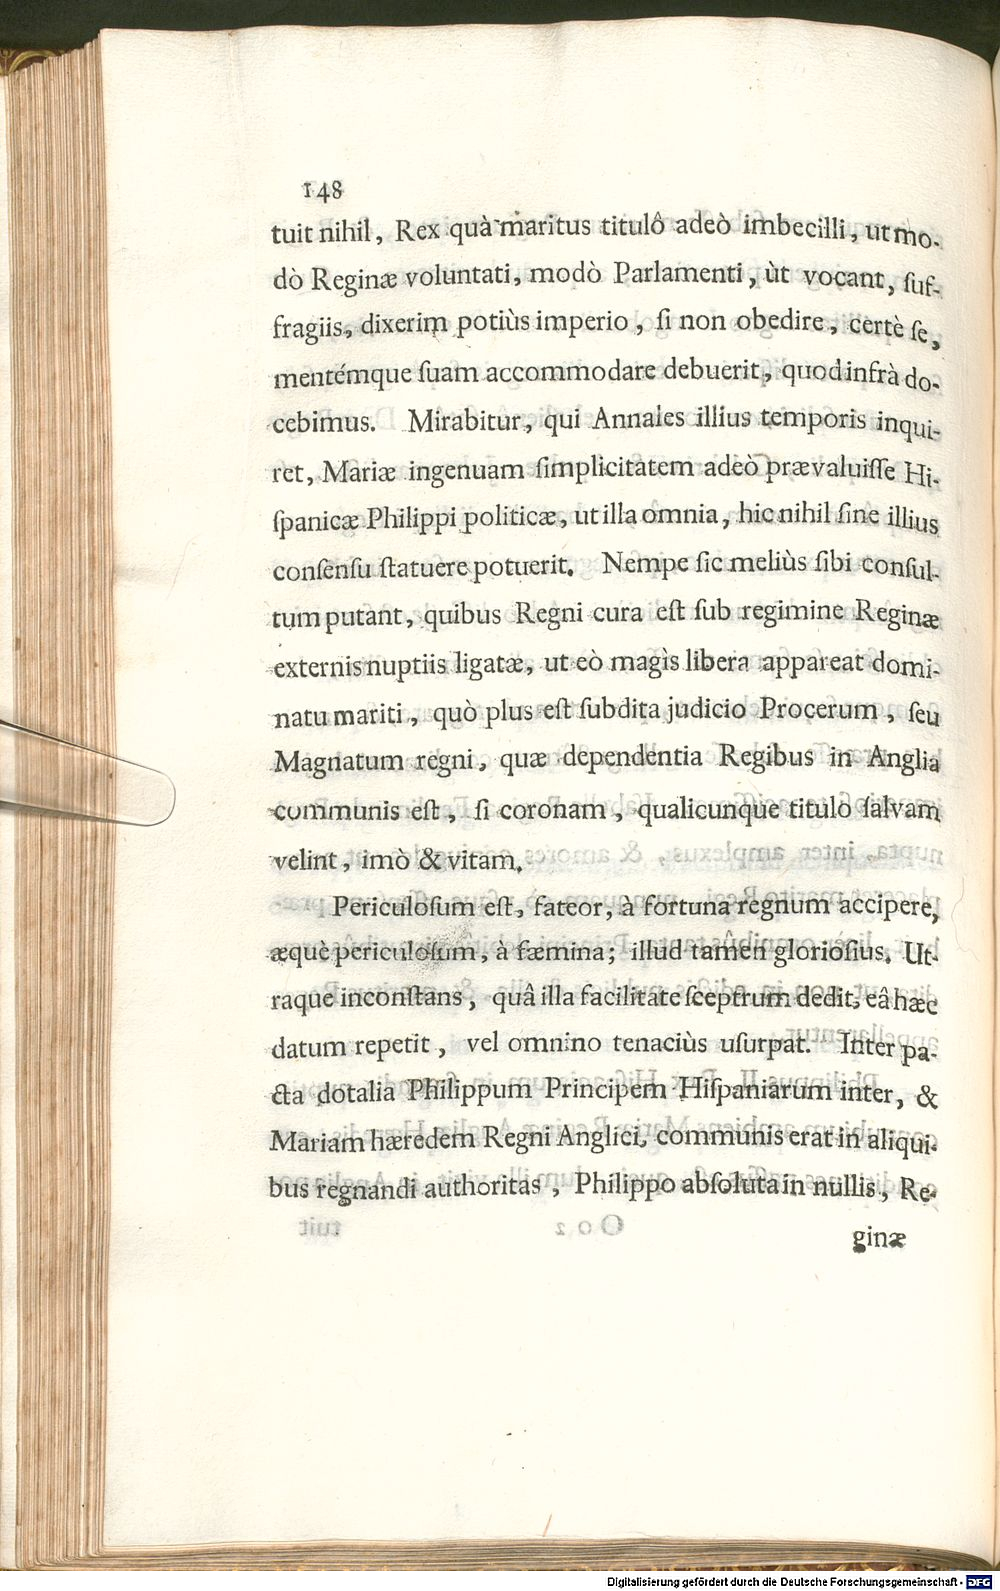 148
tuit nihil, Rex quà maritus titulô adeò imbecilli, ut mo-
dò Reginæ voluntati, modò Parlamenti, ùt vocant, ſuf-
fragiis, dixerim potiùs imperio, ſi non obedire, certè ſe,
mentémque ſuam accommodare debuerit, quod infrà do-
cebimus. Mirabitur, qui Annales illius temporis inqui-
ret, Mariæ ingenuam ſimplicitatem adeò prævaluiſſe Hi-
ſpanicæ Philippi politicæ, ut illa omnia, hic nihil ſine illius
conſenſu ſtatuere potuerit. Nempe ſic meliùs ſibi conſul-
tum putant, quibus Regni cura eſt ſub regimine Reginæ
externis nuptiis ligatæ, ut eò magìs libera appareat domi-
natu mariti, quò plus eſt ſubdita judicio Procerum, ſeu
Magnatum regni, quæ dependentia Regibus in Anglia
communis eſt, ſi coronam, qualicunque titulo ſalvam
velint, imò & vitam.
Periculoſum eſt, fateor, à fortuna regnum accipere,
æquè periculoſum, à fæmina; illud tamen glorioſius. Ut-
raque inconſtans, quâ illa facilitate ſceptrum dedit, eâ hæc
datum repetit, vel omnino tenaciùs uſurpat. Inter pa-
cta dotalia Philippum Principem Hiſpaniarum inter, &
Mariam hæredem Regni Anglici, communis erat in aliqui-
bus regnandi authoritas, Philippo abſoluta in nullis, Re-
ginæ
Digitalisierung gefördert durch die Deutsche Forschungsgemeinschaft - DFG